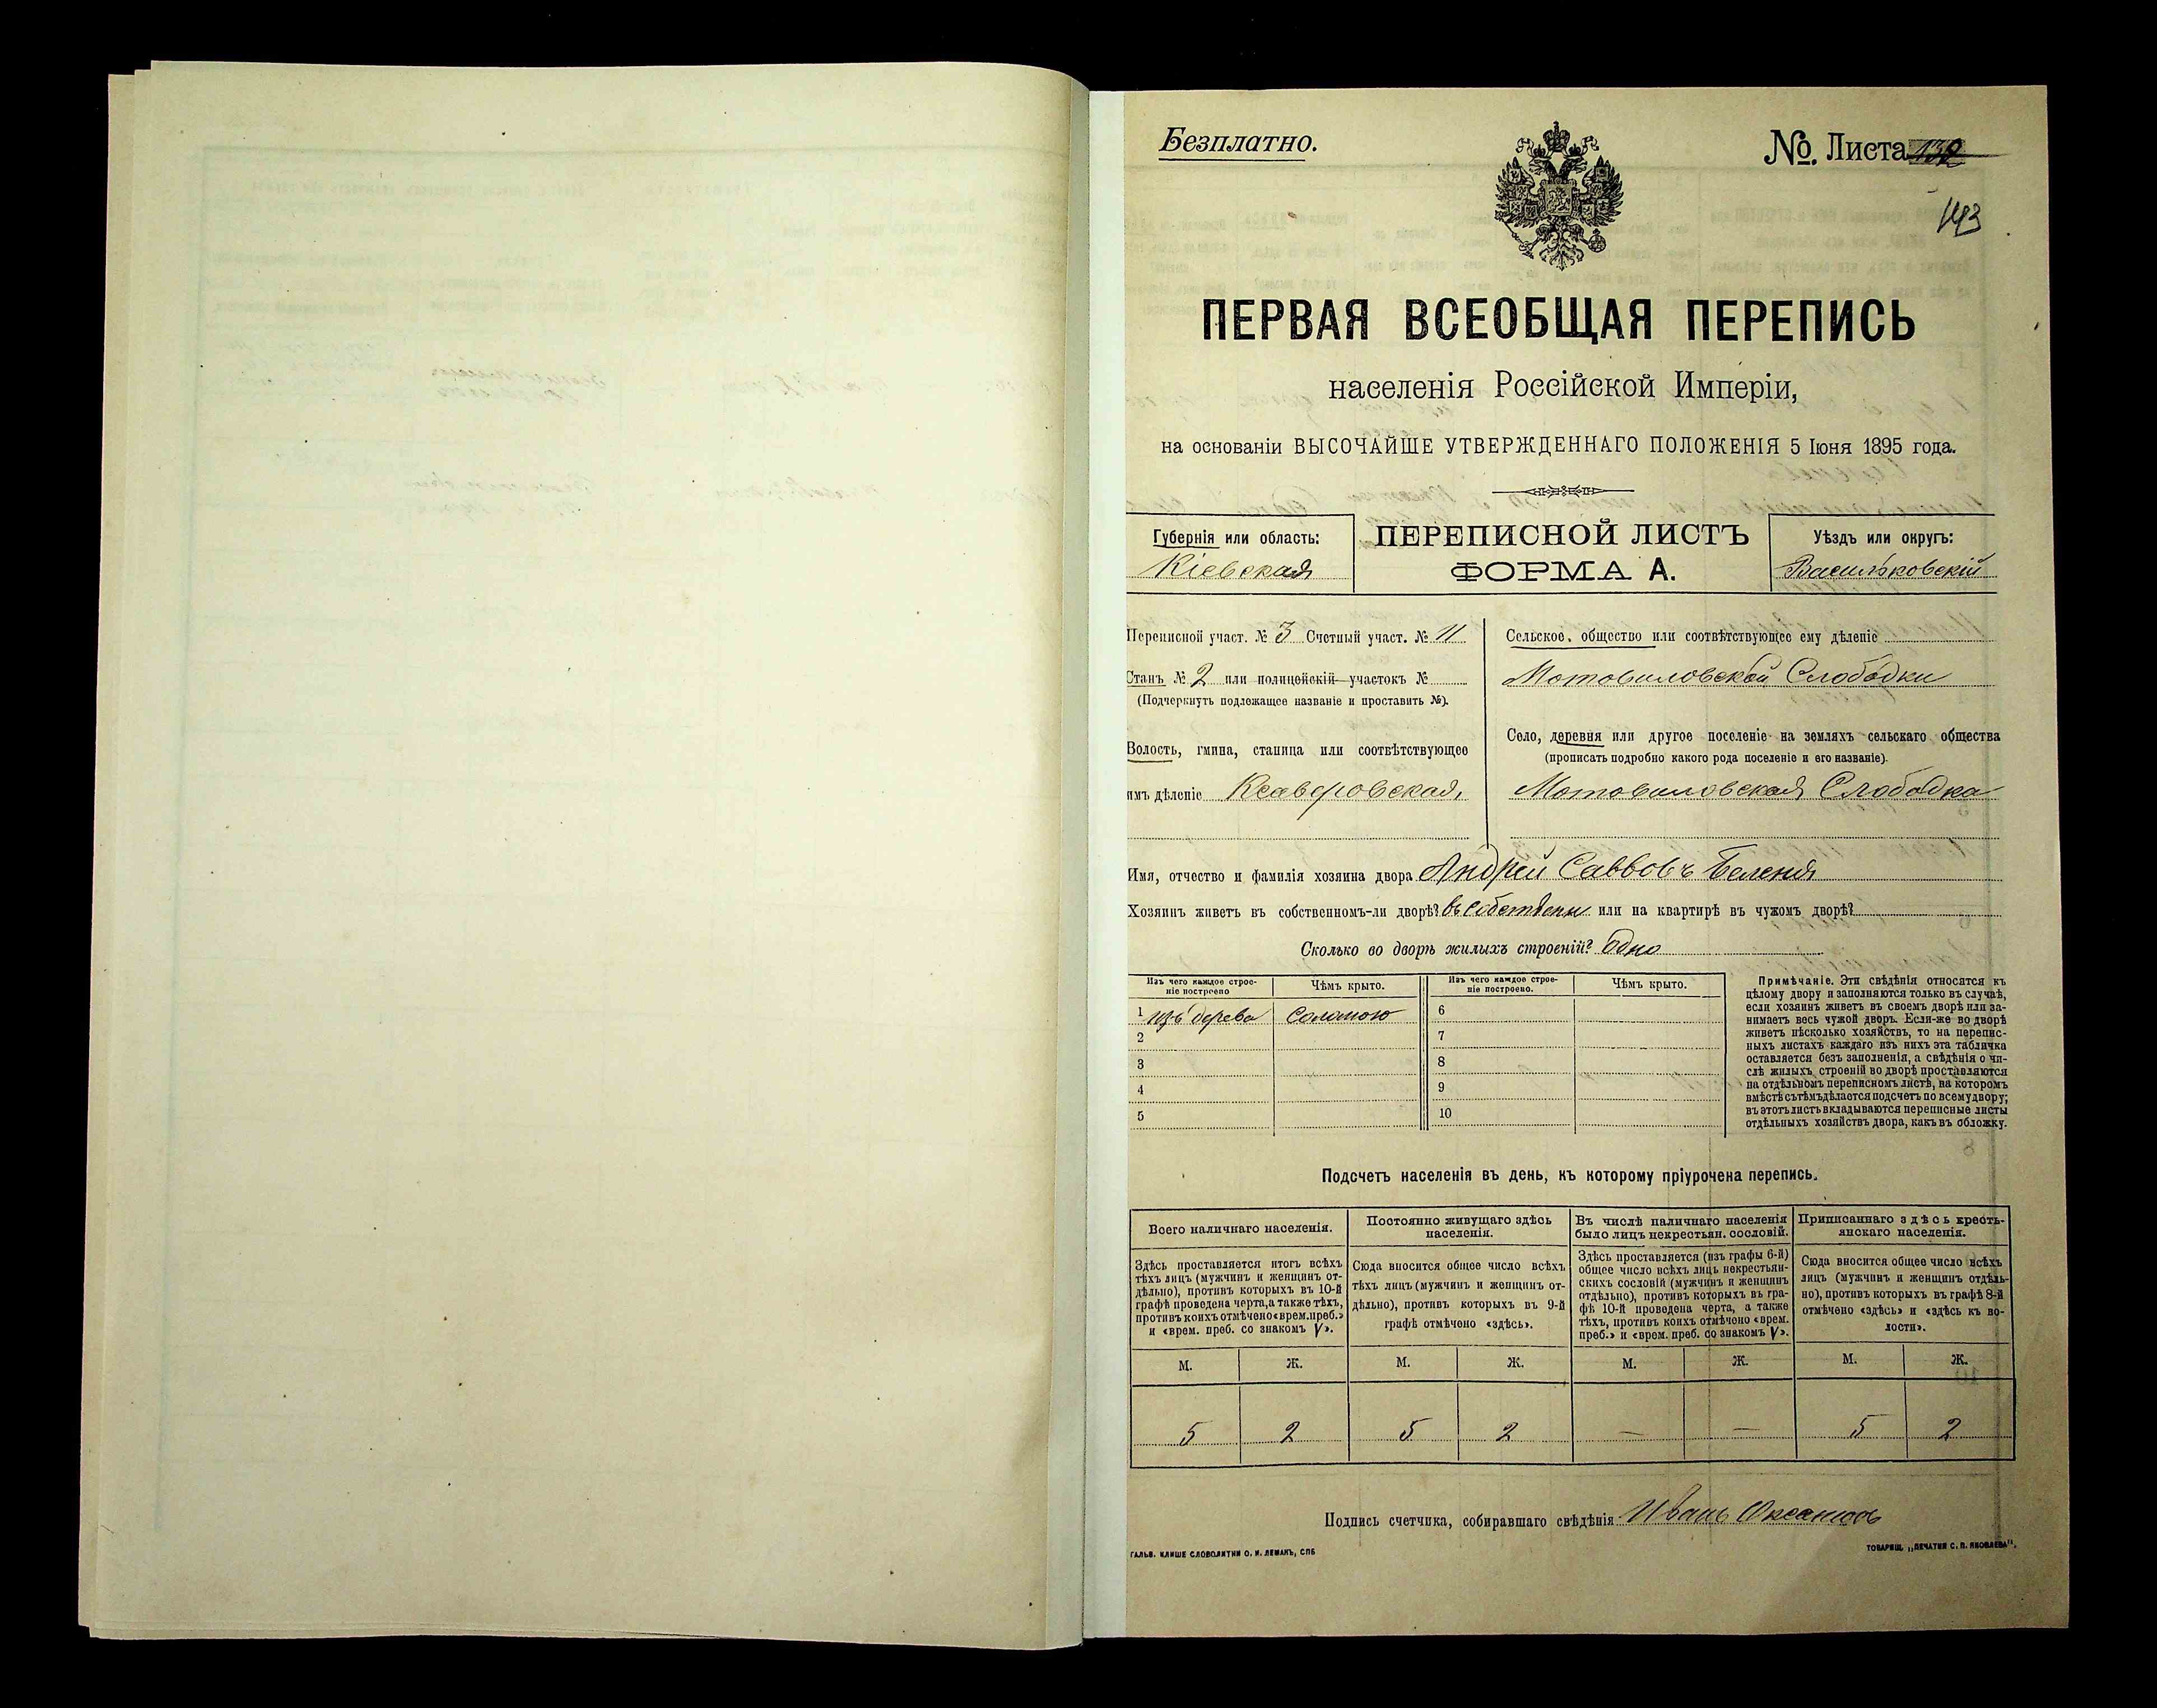 Безплатно.
№. Листа 132
143
ПЕРВАЯ ВСЕОБЩАЯ ПЕРЕПИСЬ
населенія Россійской Имперіи,
на основаніи ВЫСОЧАЙШЕ УТВЕРЖДЕННАГО ПОЛОЖЕНІЯ 5 Іюня 1895 года.
Губернія или область:
Кіевская
ПЕРЕПИСНОЙ ЛИСТЪ
ФОРМА А.
Уѣздъ или округъ:
Васильковскій
Переписной участ. № 3 Счетный участ. № 11
Станъ № 2 или полицейскій участокъ №
(Подчеркнуть подлежащее названіе и проставить №).
Волость, гмина, станица или соотвѣтствующее
имъ дѣленіе Ксаверовская
Сельское общество или соотвѣтствующее ему дѣленіе
Мотовиловской Слободки
Село, деревня или другое поселеніе на земляхъ сельскаго общества
(прописать подробно какого рода поселеніе и его названіе).
Мотовиловская Слободка
Имя, отчество и фамилія хозяина двора Андрей Саввовъ
Хозяинъ живетъ въ собственномъ-ли дворѣ? въ собствены или на квартирѣ въ чужомъ дворѣ?
Сколько во дворѣ жилыхъ строеній? Одно
Изъ чего каждое строе-
ніе построено
Чѣмъ крыто.
Изъ чего каждое строе-
ніе построено.
Чѣмъ крыто.
1 изъ дерева Соломою
2
3
4
5
6
7
8
9
10
Примѣчаніе. Эти свѣдѣнія относятся къ
цѣлому двору и заполняются только въ случаѣ,
если хозяинъ живетъ въ своемъ дворѣ или за-
нимаетъ весь чужой дворъ. Если-же во дворѣ
живетъ нѣсколько хозяйствъ, то на перепис-
ныхъ листахъ каждаго изъ нихъ эта табличка
оставляется безъ заполненія, а свѣдѣнія о чи-
слѣ жилыхъ строеній во дворѣ проставляются
на отдѣльномъ переписномъ листѣ, на которомъ
вмѣстѣ съ тѣмъ дѣлается подсчетъ по всему двору;
въ этотъ листъ вкладываются переписные листы
отдѣльныхъ хозяйствъ двора, какъ въ обложку.
Подсчетъ населенія въ день, къ которому пріурочена перепись.
Всего наличнаго населенія.
Здѣсь проставляется итогъ всѣхъ
тѣхъ лицъ (мужчинъ и женщинъ от-
дѣльно), противъ которыхъ въ 10-й
графѣ проведена черта, а также тѣхъ,
противъ коихъ отмѣчено «врем. преб.»
и «врем. преб. со знакомъ V».
Постоянно живущаго здѣсь
населенія.
Сюда вносится общее число всѣхъ
тѣхъ лицъ (мужчинъ и женщинъ от-
дѣльно), противъ которыхъ въ 9-й
графѣ отмѣчено «здѣсь».
Въ числѣ наличнаго населенія
было лицъ некрестьян. сословій.
Здѣсь проставляется (изъ графы 6-й)
общее число всѣхъ лицъ некрестьян-
скихъ сословій (мужчинъ и женщинъ
отдѣльно), противъ которыхъ въ гра-
фѣ 10-й проведена черта, а также
тѣхъ, противъ коихъ отмѣчено «врем.
преб.» и «врем. преб. со знакомъ V».
Приписаннаго здѣсь кресть-
янскаго населенія.
Сюда вносится общее число всѣхъ
лицъ (мужчинъ и женщинъ отдѣль-
но), противъ которыхъ въ графѣ 8-й
отмѣчено «здѣсь» и «здѣсь къ во-
лости».
М. Ж. М. Ж. М. Ж. М. Ж.
5 2 5 2 — — 5 2
Подпись счетчика, собиравшаго свѣдѣнія Иванъ
ГАЛЬВ. КЛИШЕ СЛОВОЛИТНИ О. И. ЛЕМАНЪ, СПБ
ТОВАРИЩ. „ПЕЧАТНЯ С. П. ЯКОВЛЕВА".